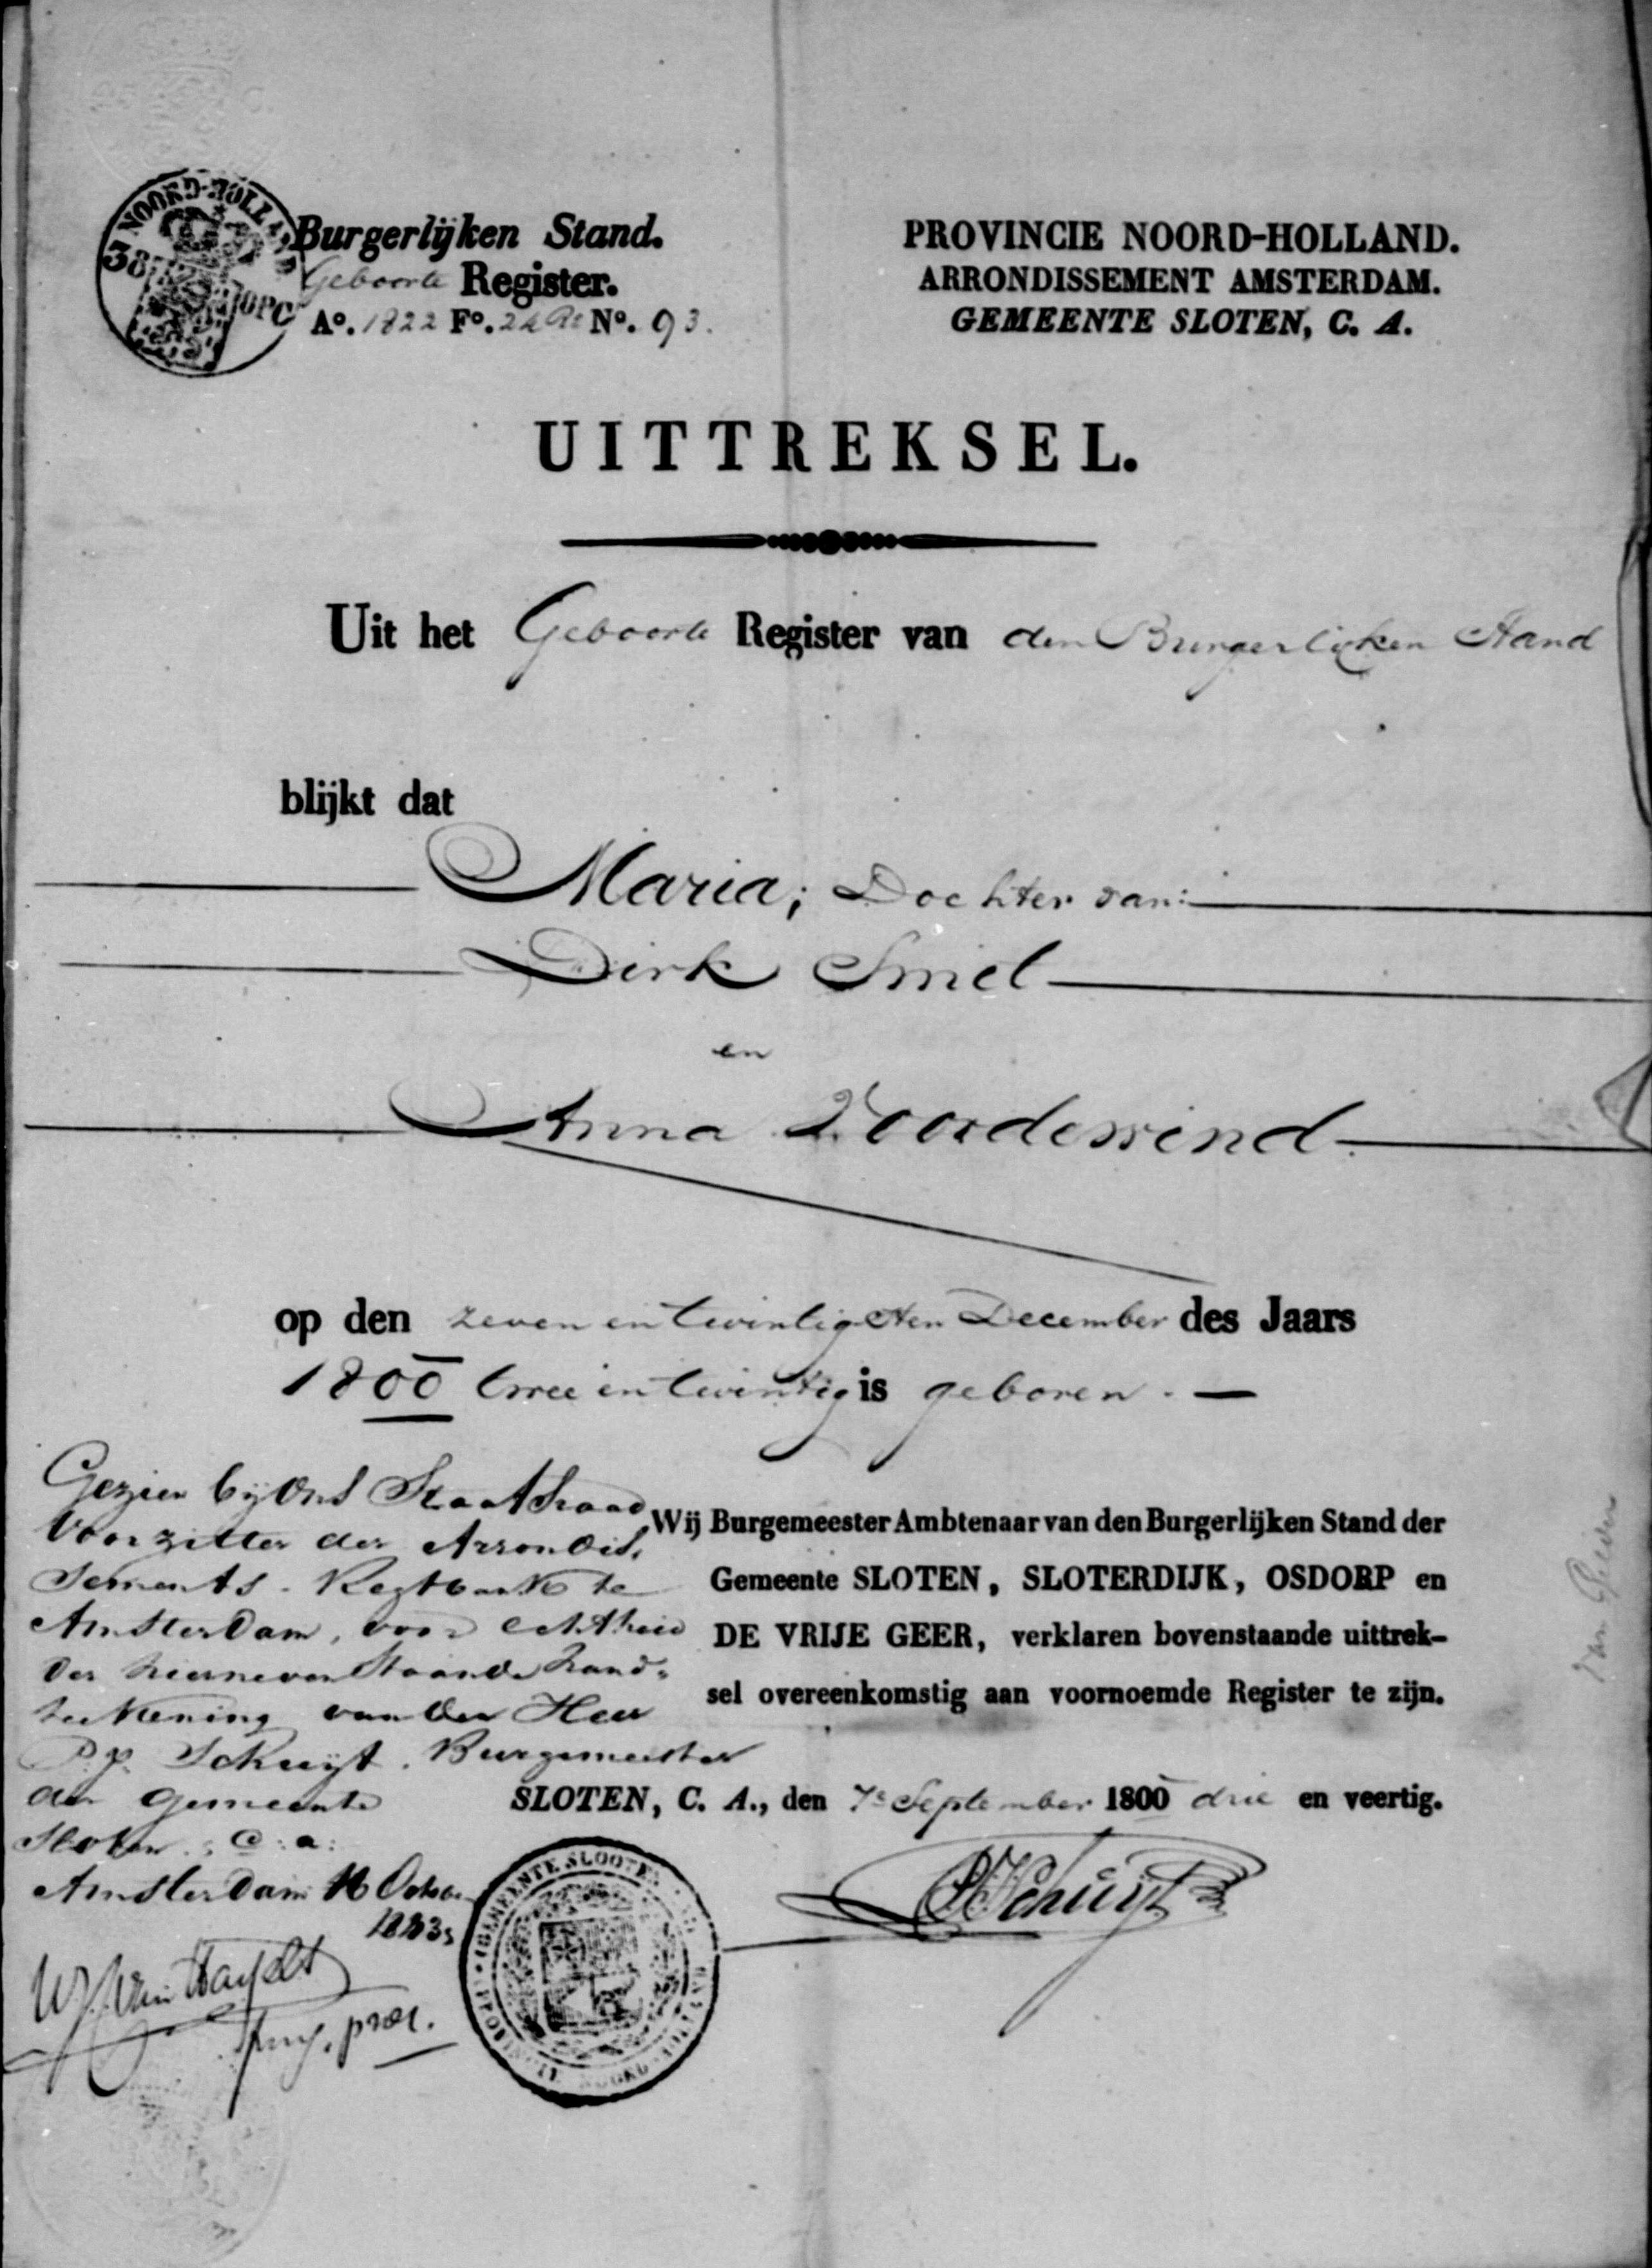 NOORD-HOLLAND
38
OPC
Burgerlijken Stand.
Geboorte Register.
Aº. 1822 Fº. 24 Nº. 93.
PROVINCIE NOORD-HOLLAND.
ARRONDISSEMENT AMSTERDAM.
GEMEENTE SLOTEN, C. A.
UITTREKSEL.
Uit het Geboorte Register van den Burgerlijken Stand
blijkt dat
Maria; Dochter van:
Dirk Smel
en
Anna Voordewind
op den zeven en twintigsten December des Jaars
1800 twee en twintig is geboren.
Gezien bij Ons Staatsraad
Voorzitter der Arrondis,
sements-Regtbank te
Amsterdam, voor echtheid
der hiernevenstaande hand=
teekening van den Heer
P. Schuijt. Burgemeester
der Gemeente
Sloten, C: a:
Amsterdam 16 Octob
1843
Wij Burgemeester Ambtenaar van den Burgerlijken Stand der
Gemeente SLOTEN, SLOTERDIJK, OSDORP en
DE VRIJE GEER, verklaren bovenstaande uittrek-
sel overeenkomstig aan voornoemde Register te zijn.
SLOTEN, C. A., den 7e September 1800 drie en veertig.
Schuijt
GEMEENTE SLOOTEN
PROVINCIE NOORD-HOLLAND